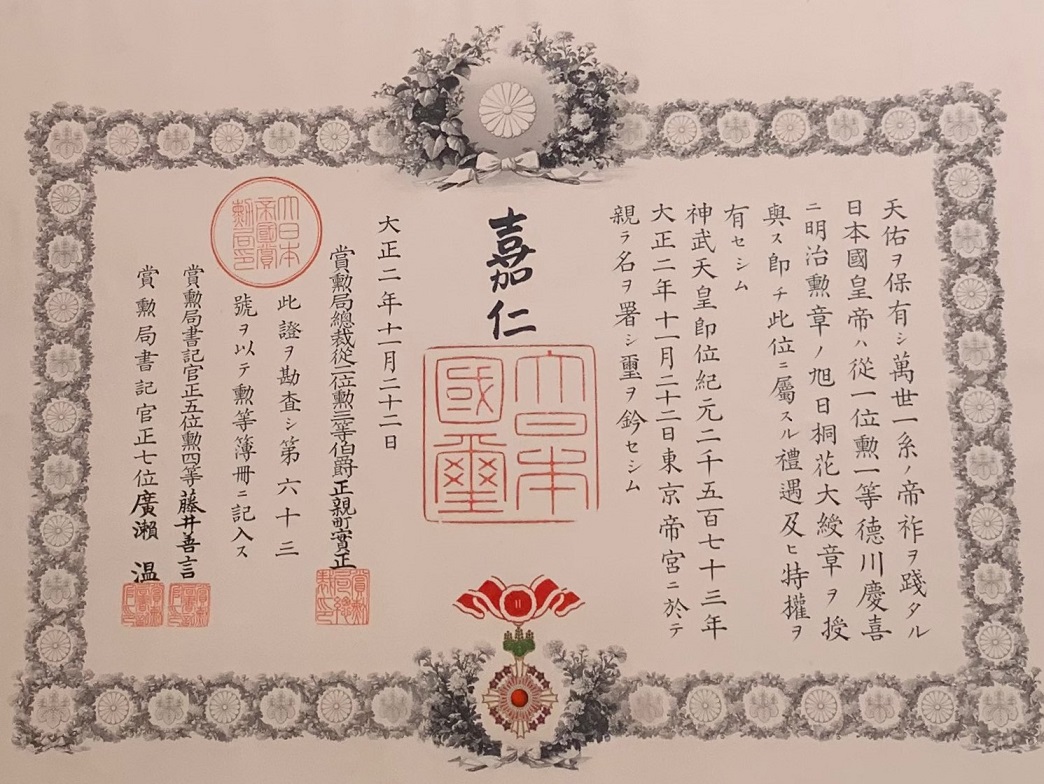 天佑ヲ保有シ萬世一系ノ帝祚ヲ踐タル
日本國皇帝ハ從一位勲一等德川慶喜
ニ明治勲章ノ旭日桐花大綬章ヲ授
與ス即チ此位ニ屬スル禮遇及ヒ特權ヲ
有セシム
神武天皇即位紀元二千五百七十三年
大正二年十一月二十二日東京帝宮ニ於テ
親ラ名ヲ署シ璽ヲ鈐セシム
嘉仁
大日本
國璽
大正二年十一月二十二日
賞勲局總裁從二位勲三等伯爵正親町實正
此證ヲ勘査シ第六十三
號ヲ以テ勲等簿冊ニ記入ス
大日本
帝國賞
勲局印
賞勲局書記官正五位勲四等藤井善言
賞勲局書記官正七位廣瀬溫